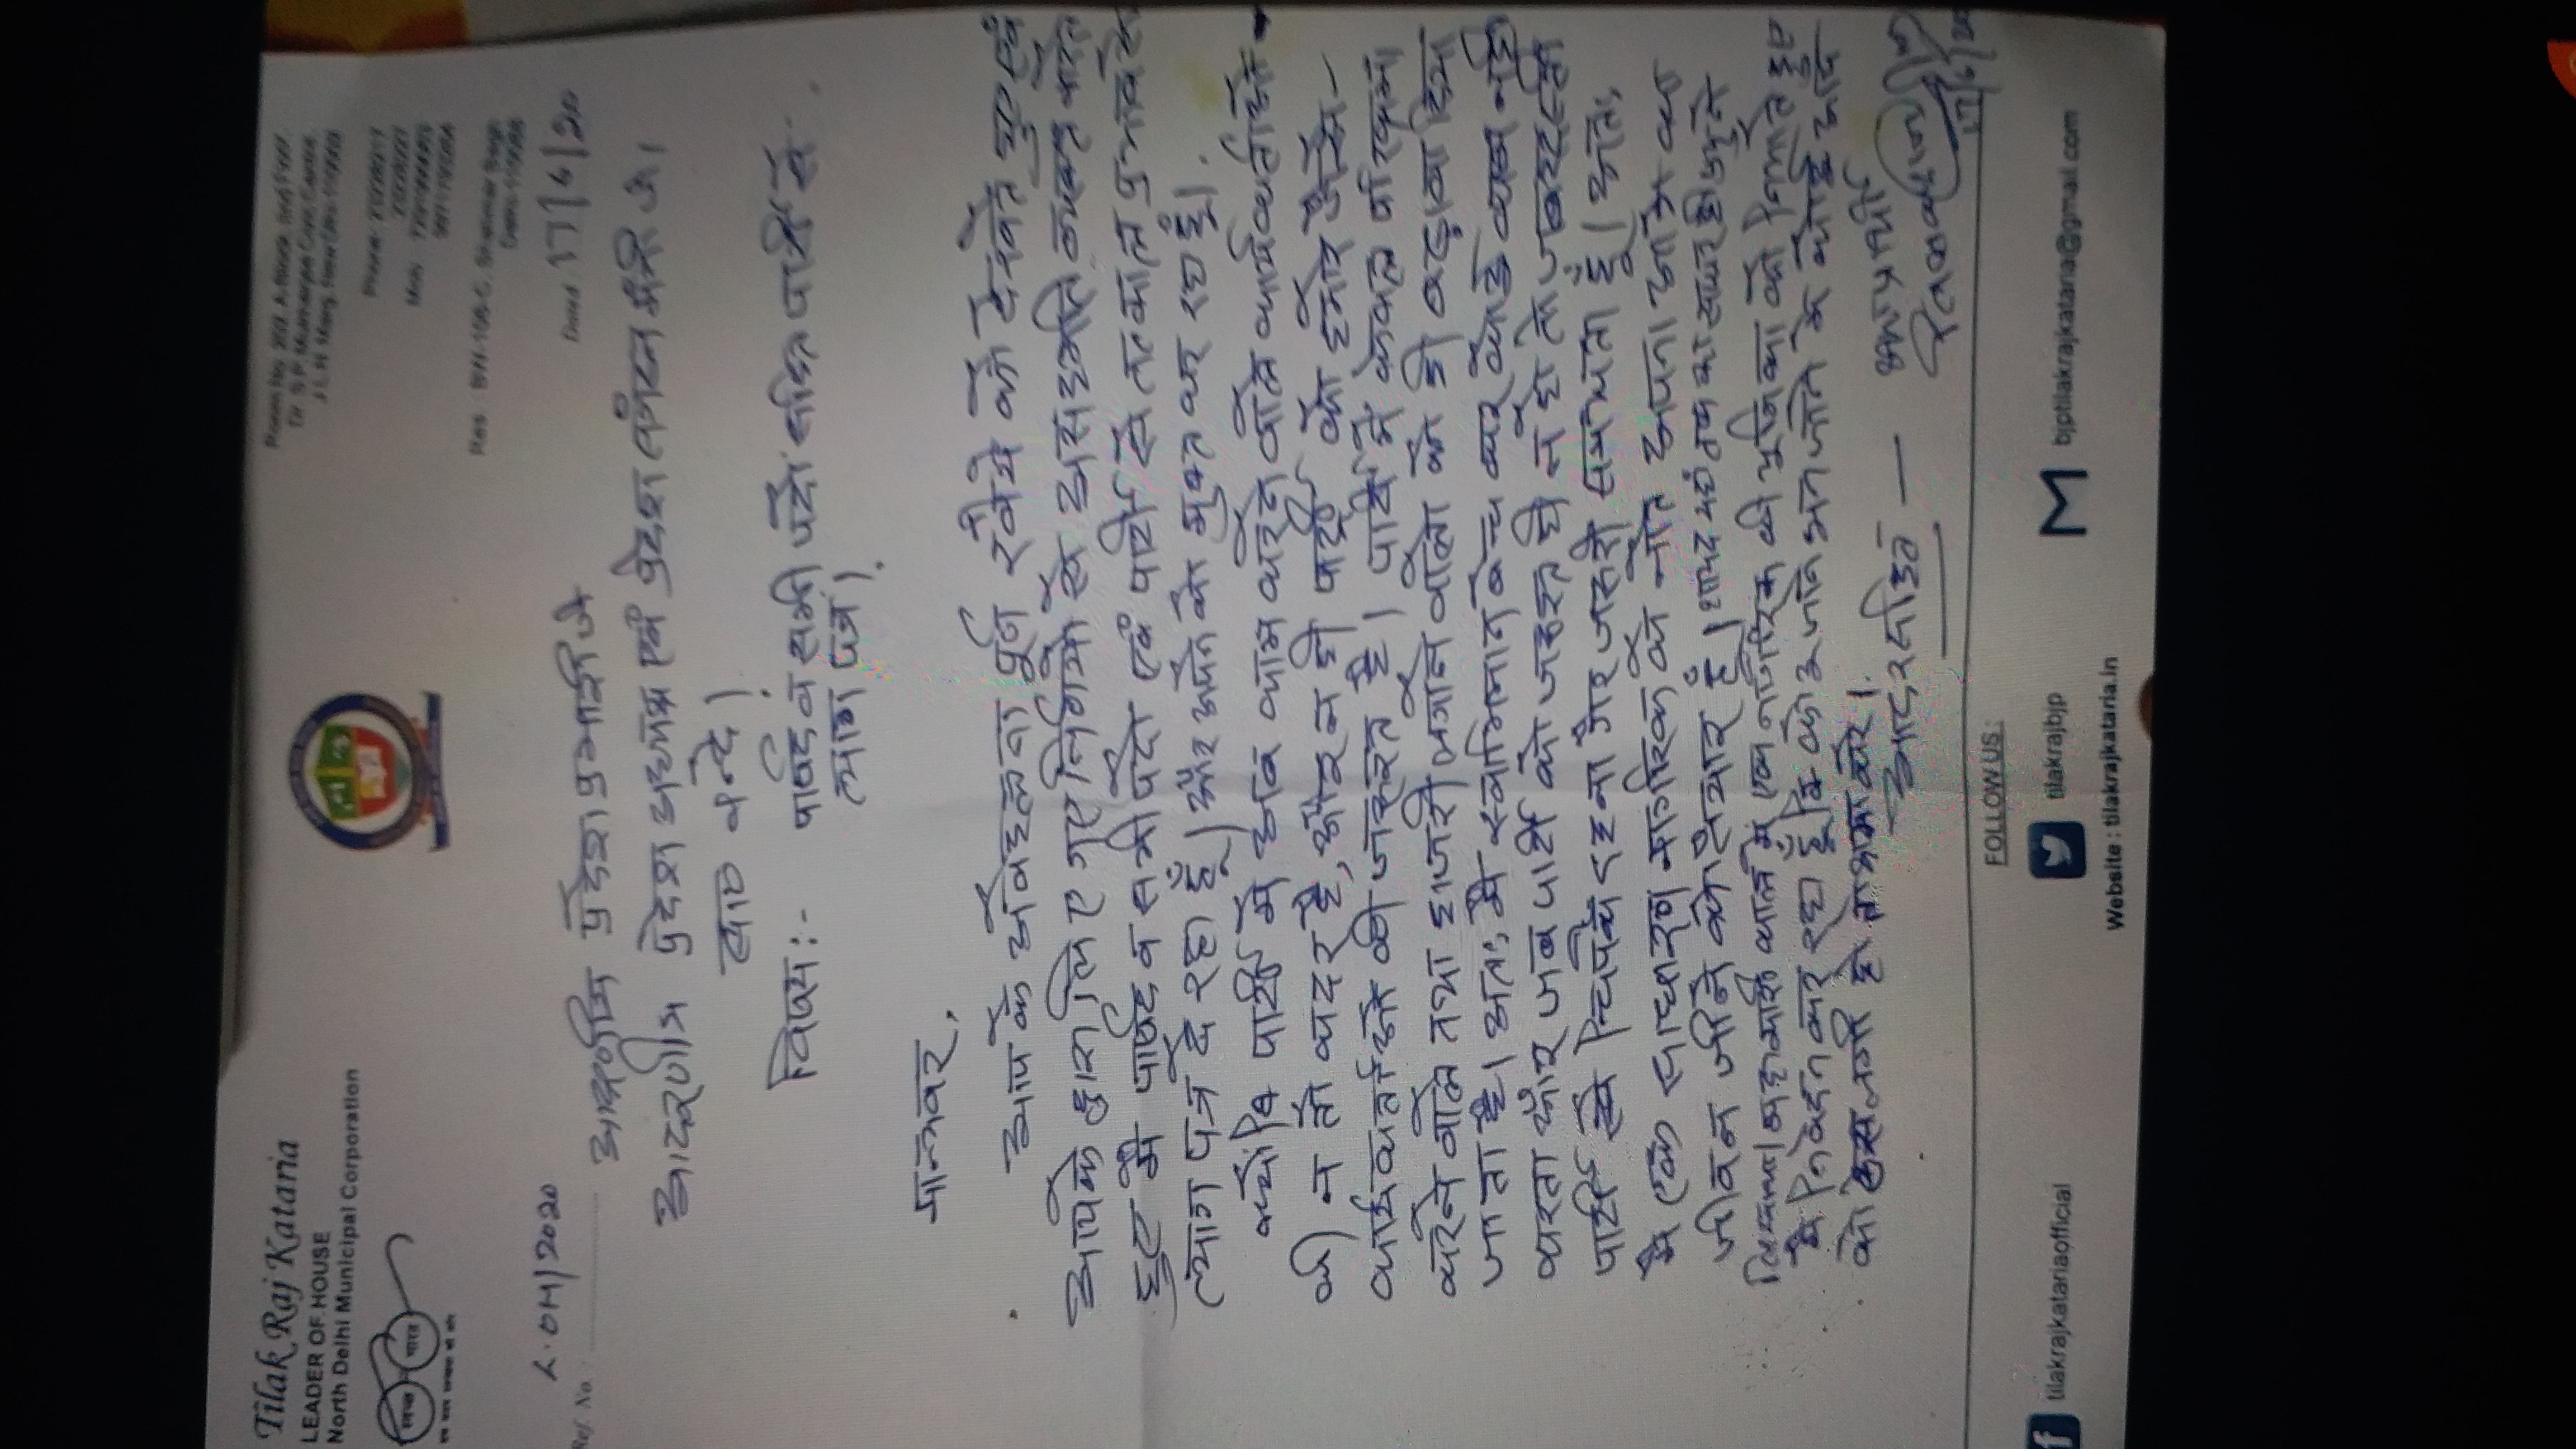 Tilak Raj Kataria
LEADER OF HOUSE
North Delhi Municipal Corporation
स्वच्छ भारत
एक कदम स्वच्छता की ओर
Dr. S.P. Civic Centre,
J.L.N. Marg, New Delhi-110002
Phone :
Mob :
Res : Shalimar Bagh
L.OH/2020
Ref. No.
Dated 17/6/20
आदरणीय प्रदेश प्रभारी जी
आदरणीय प्रदेश अध्यक्ष एवं प्रदेश संगठन मंत्री जी।
वन्दे।
विषय:- पार्षद व सभी पदों सहित पार्टी से
त्याग पत्र।
मान्यवर,
आप के अवेहलना पूर्ण रवैये को देखते हुए एवं
आपके द्वारा लिए गए निर्णयों से असहमति व्यक्त करते
हुए मै पार्षद व सभी पदों एवं पार्टी से तत्काल प्रभाव से
त्याग पत्र दे रहा हूँ। और अपने को मुक्त कर रहा हूँ।
क्योंकि पार्टी में अब काम करने वाले कार्यकर्ताओं
की न तो कदर है, और न ही पार्टी को हमारे जैसे
कार्यकर्ताओं की जरूरत है। पार्टी में केवल परिक्रमा
करने वाले तथा हाजरी लगाने वालो को ही बढ़ावा दिया
जाता है। अतः मै स्वाभिमान बेच कर कोई काम नही
करता और जब पार्टी को जरूरत ही न हो तो जबरदस्ती
पार्टी से चिपके रहना गैर जरूरी समझता हूँ। अतः
मै एक साधारण नागरिक के नाते अपना आगे का
जीवन जीने को तैयार हूँ। शायद यहाँ तक का सफर ही प्रभु ने
लिखा था। महामारी काल में एक नागरिक की भूमिका को निभाते हुए
मै निवेदन कर रहा हूँ कि कोई जाने अनजाने में कोई आप
को ठेस लगी हो तो क्षमा करे।
आदरसहित — क्षमाप्रार्थी
17/6/20
FOLLOW US :
tilakrajkatariaofficial
tilakrajbjp
bjptilakrajkataria@gmail.com
Website : tilakrajkataria.in